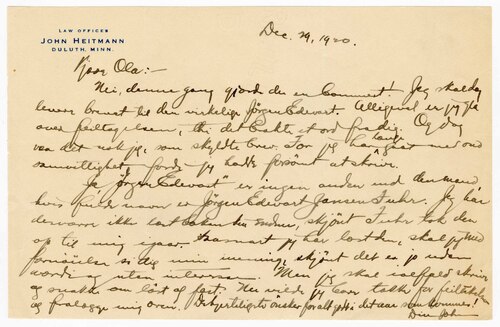 LAW OFFICES
JOHN HEITMANN
DULUTH, MINN.
Dec. 29, 1920.
Kjære Ola:-
Nei, denne gang gjorde du en Bommert! Jeg skal dog
levere brevet til den virkelige Jørgen Edwart. Alligevel er jeg gla
over feiltagelsen, thi det bakte et ord fra dig. Og dog
var det vel jeg, som skyldte brev. For jeg har gaat længe med ond
samvittighet fordi jeg hadde forsømt at skrive.
Ja "Jørgen Edwart" er ingen anden end den mand,
hvis fulde navn er Jørgen Edwart Jansen Fuhr. Jeg har
desværre ikke læst boken hs endnu, skjønt Fuhr tok den
op til mig igaar. Saasnart jeg har læst den, skal jeg med
fornøielse si dig min mening, skjønt det er jo uden
værdi og uten interesse. Men jeg skal ialfald skrive
og snakke om løst og fast. Nu vilde jeg bare takke for feiltakelsen
og forlægge mig over. Det hjerteligste ønsker for alt godt i det aar som kommer!
Din John